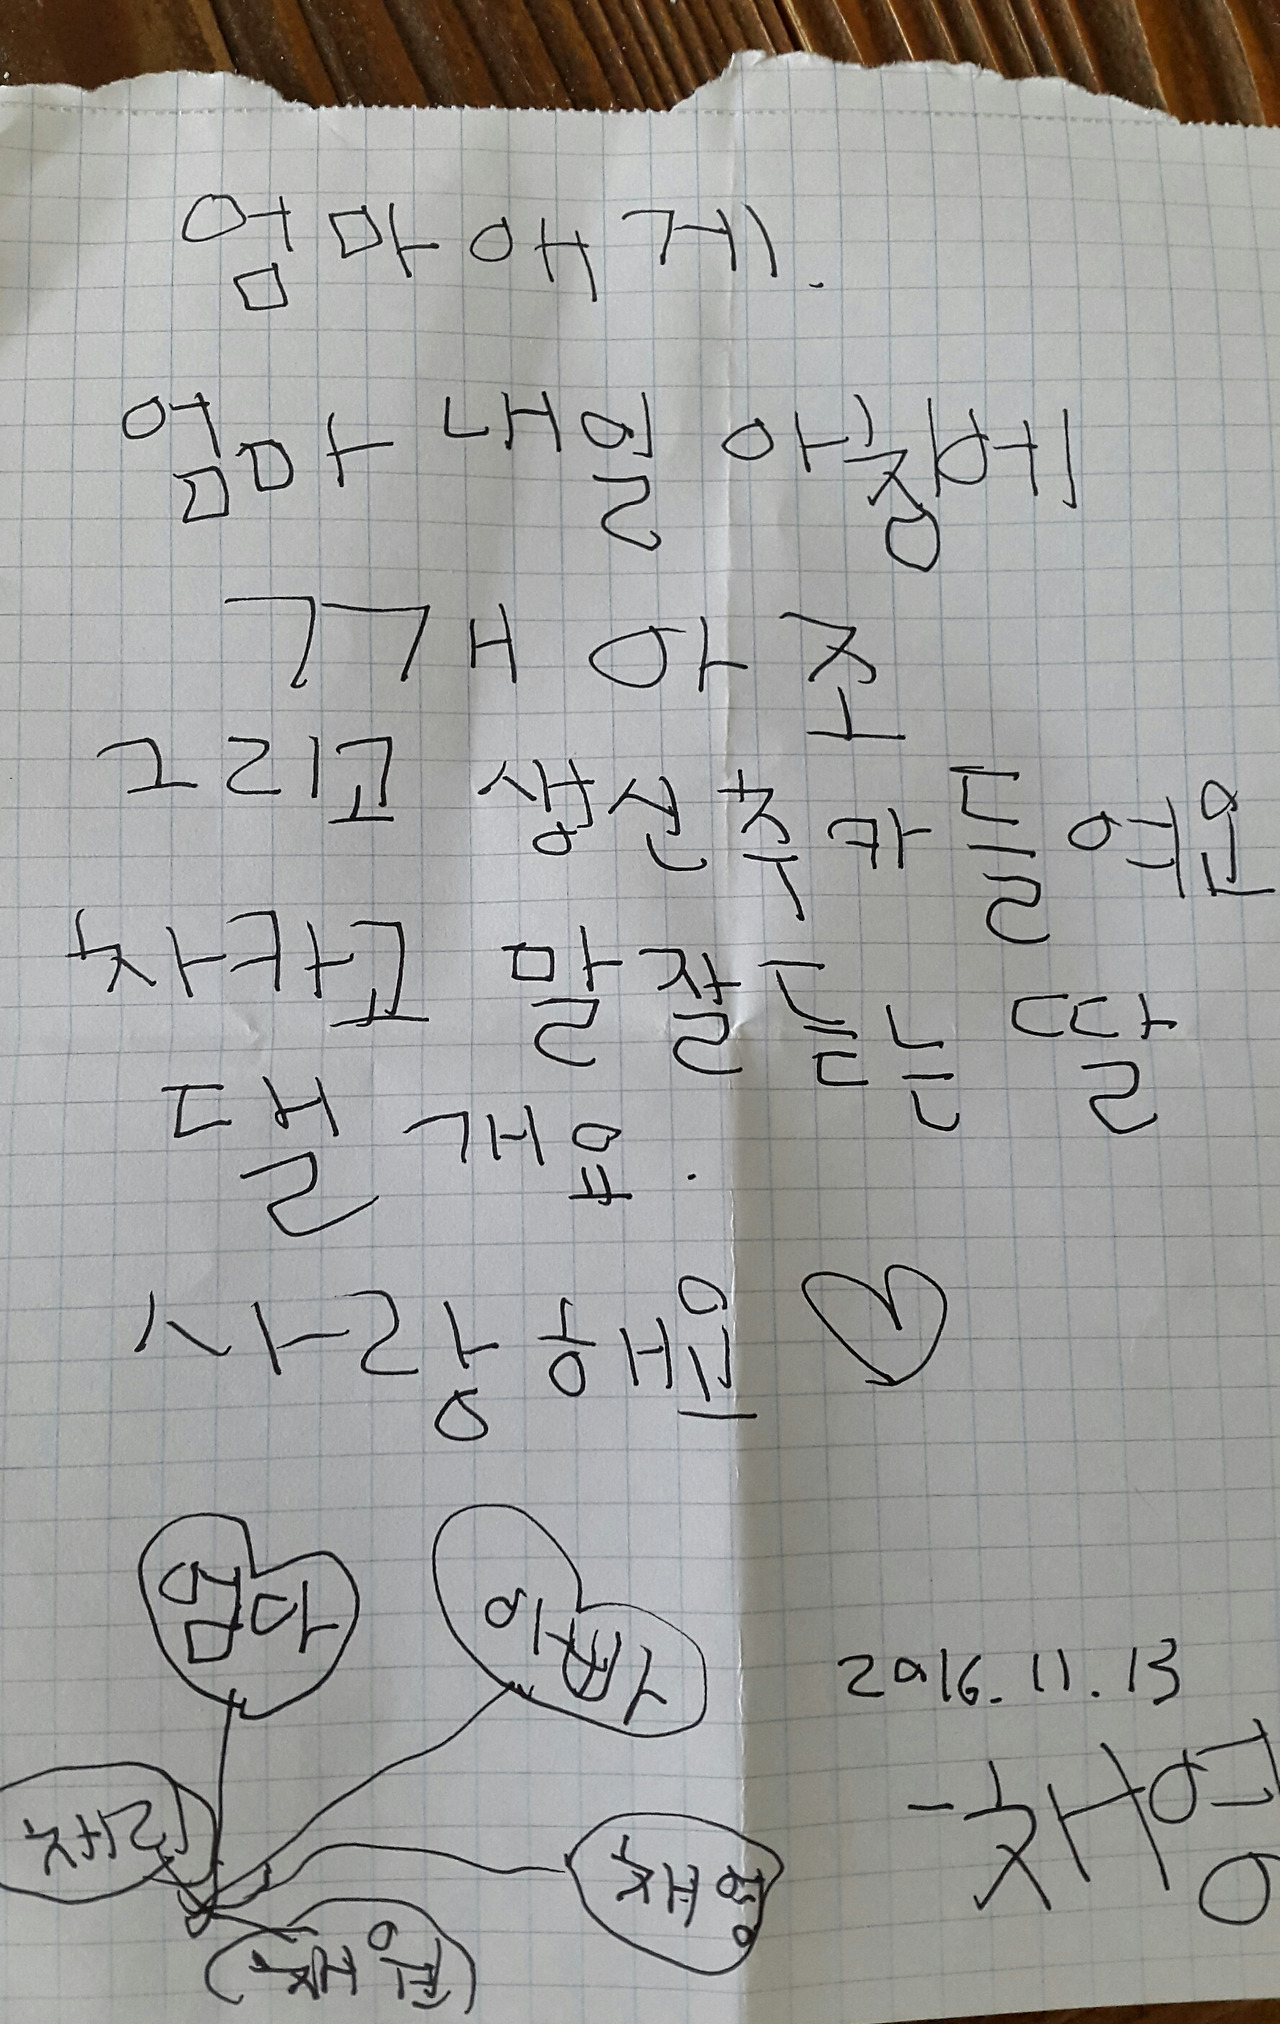 엄마에게.
엄마 내일 아침에
깨아조
그리고 생신추카들여요
차카고 말잘듣는 딸
댈게요.
사랑해요
엄마 아빠
2016.11.13
채리
-채영
채영
채윤